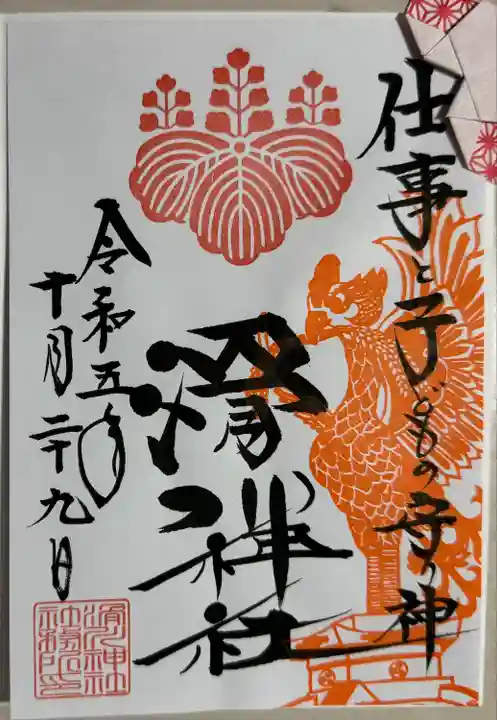 仕事と子どもの守り神
滑川神社
令和五年
十月二十九日
滑川神社
社務所印